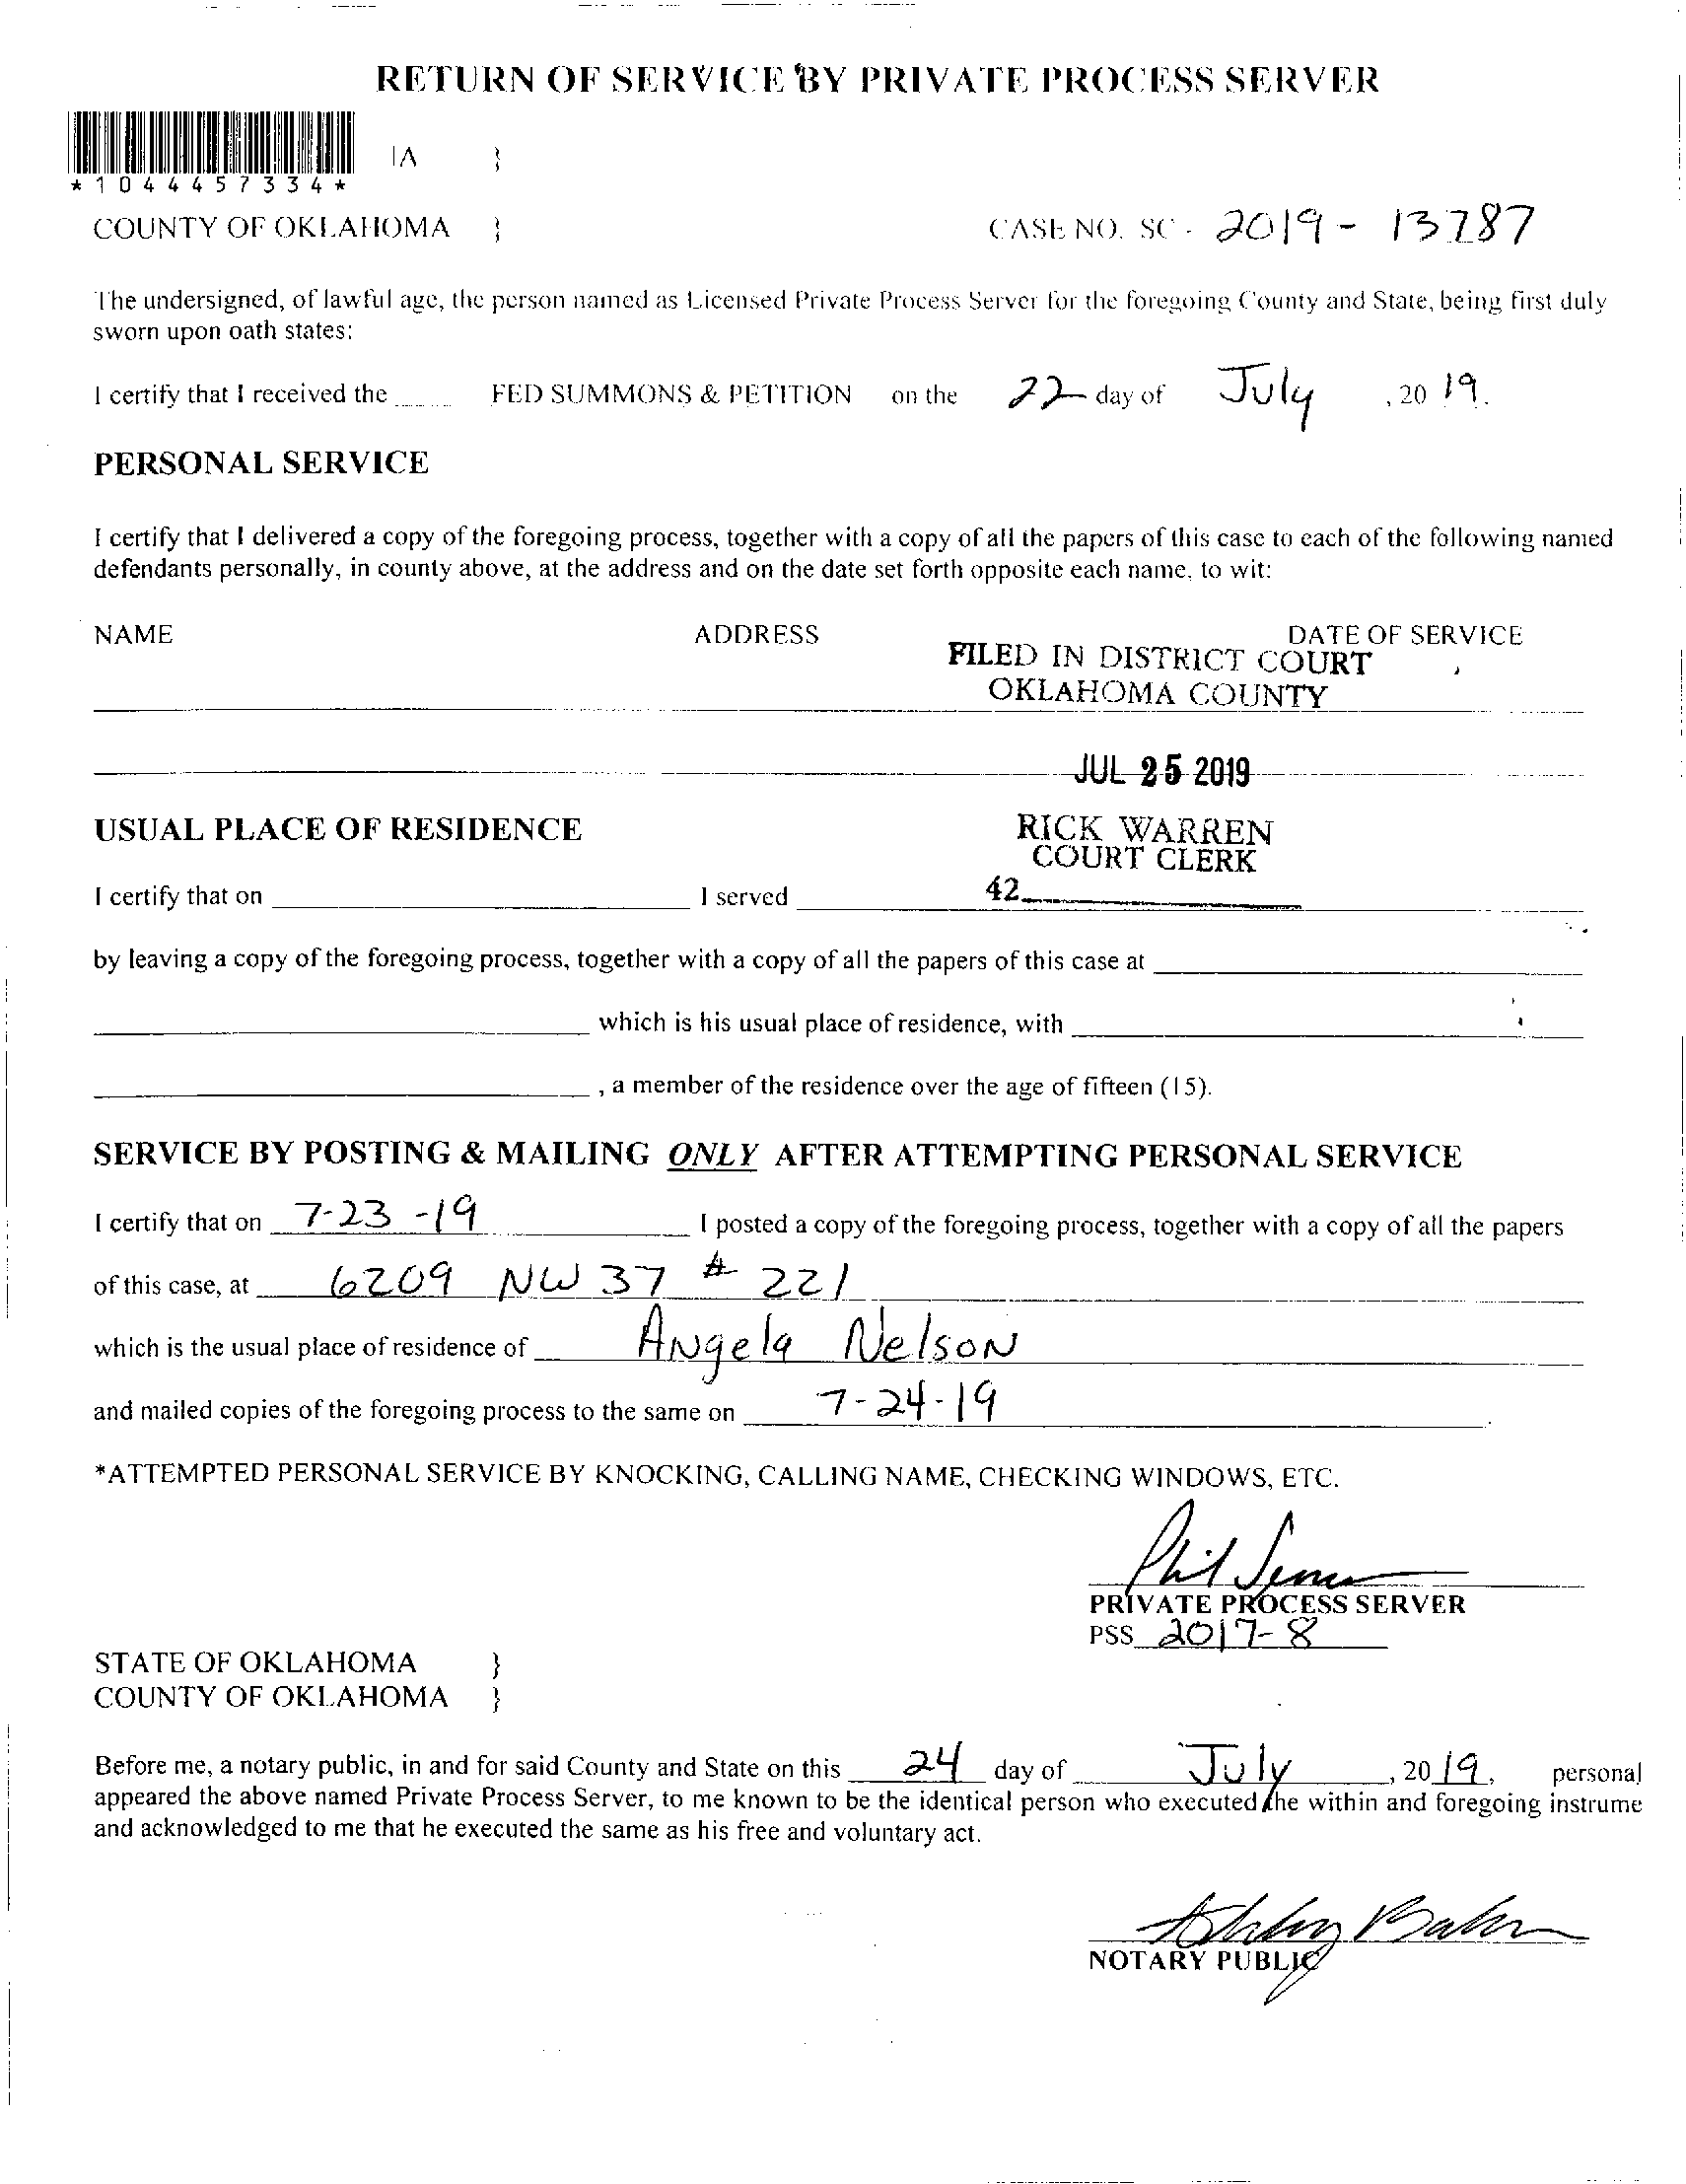 RETURN OF SERVICE BY PRIVATE PROCESS SERVER
IA }
*1044457334*
COUNTY OF OKLAHOMA } CASE NO. SC - 2019 - 13787
The undersigned, of lawful age, the person named as Licensed Private Process Server for the foregoing County and State, being first duly
sworn upon oath states:
I certify that I received the ____ FED SUMMONS & PETITION on the 22 day of July , 20 19.
PERSONAL SERVICE
I certify that I delivered a copy of the foregoing process, together with a copy of all the papers of this case to each of the following named
defendants personally, in county above, at the address and on the date set forth opposite each name, to wit:
NAME ADDRESS DATE OF SERVICE
FILED IN DISTRICT COURT
OKLAHOMA COUNTY
JUL 25 2019
USUAL PLACE OF RESIDENCE RICK WARREN
COURT CLERK
I certify that on ____ I served ____ 42 ____
by leaving a copy of the foregoing process, together with a copy of all the papers of this case at ____
____ which is his usual place of residence, with ____
____ , a member of the residence over the age of fifteen (15).
SERVICE BY POSTING & MAILING ONLY AFTER ATTEMPTING PERSONAL SERVICE
I certify that on 7-23-19 I posted a copy of the foregoing process, together with a copy of all the papers
of this case, at 6209 NW 37 # 221
which is the usual place of residence of Angela Nelson
and mailed copies of the foregoing process to the same on 7-24-19
*ATTEMPTED PERSONAL SERVICE BY KNOCKING, CALLING NAME, CHECKING WINDOWS, ETC.
Phil
PRIVATE PROCESS SERVER
PSS 2017-8
STATE OF OKLAHOMA }
COUNTY OF OKLAHOMA }
Before me, a notary public, in and for said County and State on this 24 day of July , 20 19, personal
appeared the above named Private Process Server, to me known to be the identical person who executed the within and foregoing instrume
and acknowledged to me that he executed the same as his free and voluntary act.
NOTARY PUBLIC